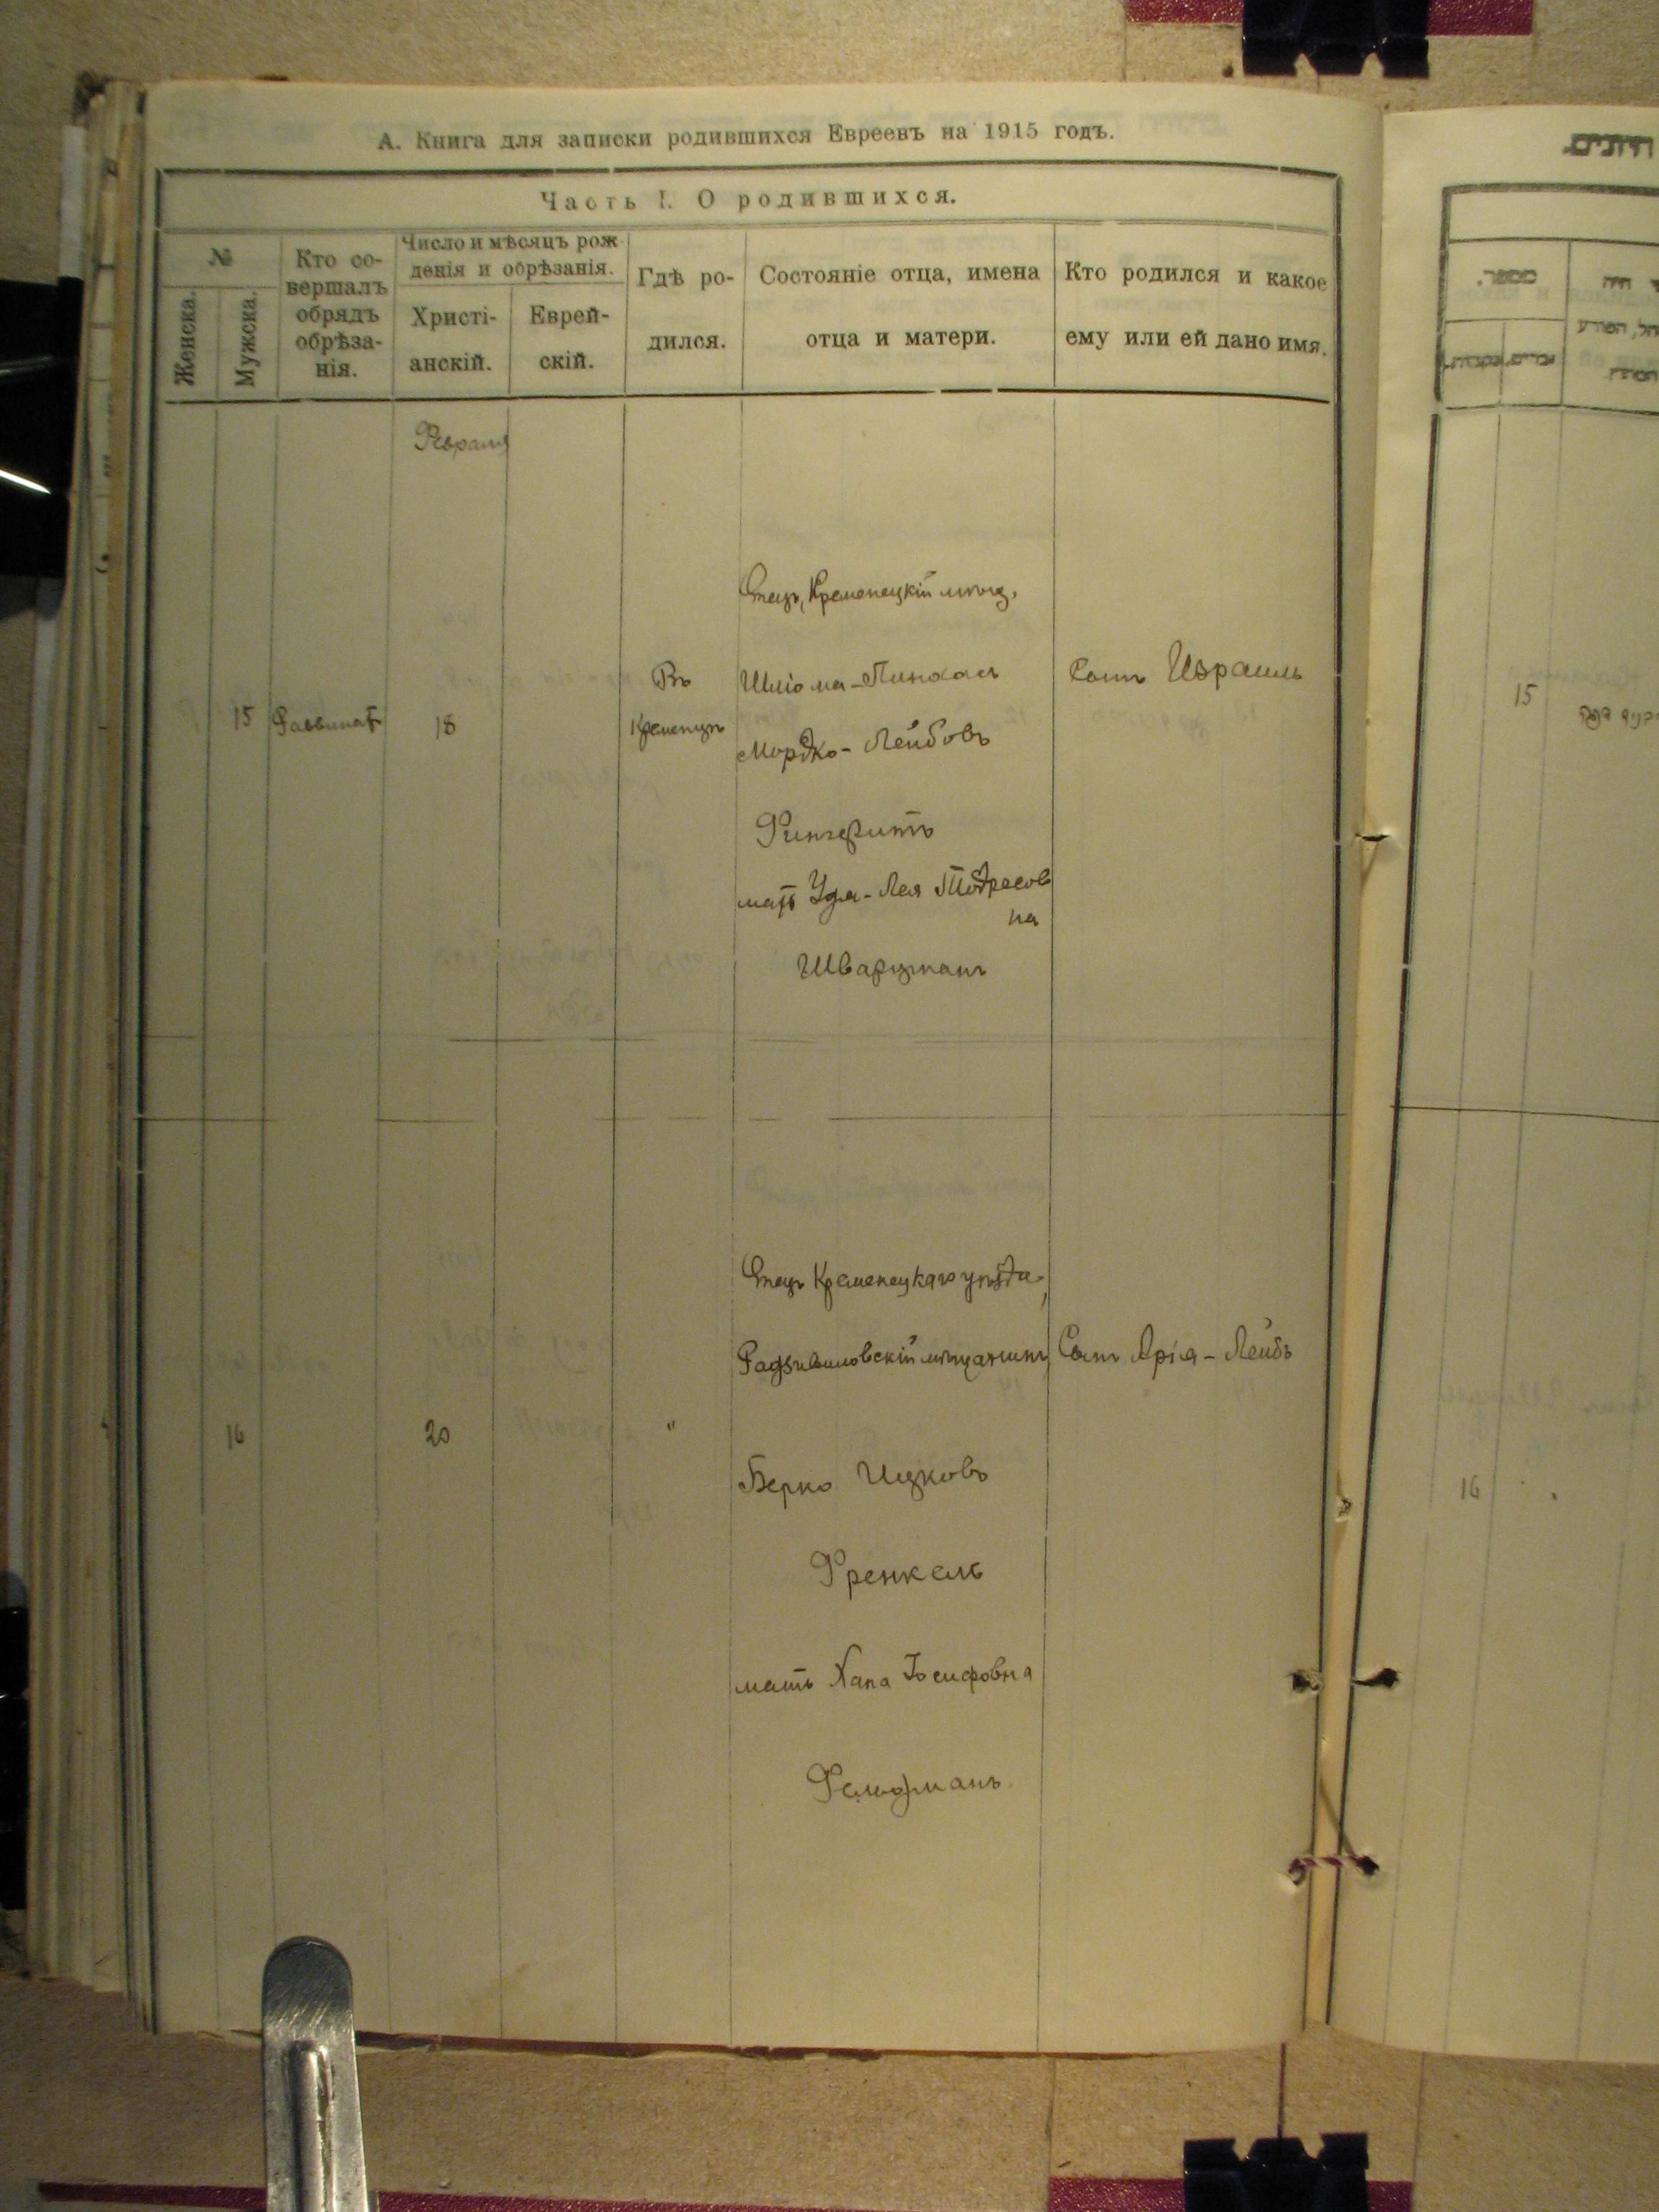 А. Книга для записки родившихся Евреевъ на 1915 годъ.
Часть I. О родившихся.
№
Женска.
Мужска.
Кто со-
вершалъ
обрядъ
обрѣза-
нія.
Число и мѣсяцъ рож
денія и обрѣзанія.
Христі-
анскій.
Еврей-
скій.
Гдѣ ро-
дился.
Состояніе отца, имена
отца и матери.
Кто родился и какое
ему или ей дано имя.
Февраля
15
Раввинат
18
Въ
Кременцѣ
Отецъ, Кременецкій мѣщ.
Шліома-Пинхасъ
Мордко-Лейбовъ
мать Удя-Лея Тодресов
на
Шварцманъ
Сынъ Израиль
16
20
"
Отецъ Кременецкаго уѣзда,
Радзивиловскій мѣщанинъ
Берко Ицковъ
Френкель
мать Хана Іосифовна
Фельдманъ.
Сынъ Арія-Лейбъ
15
16